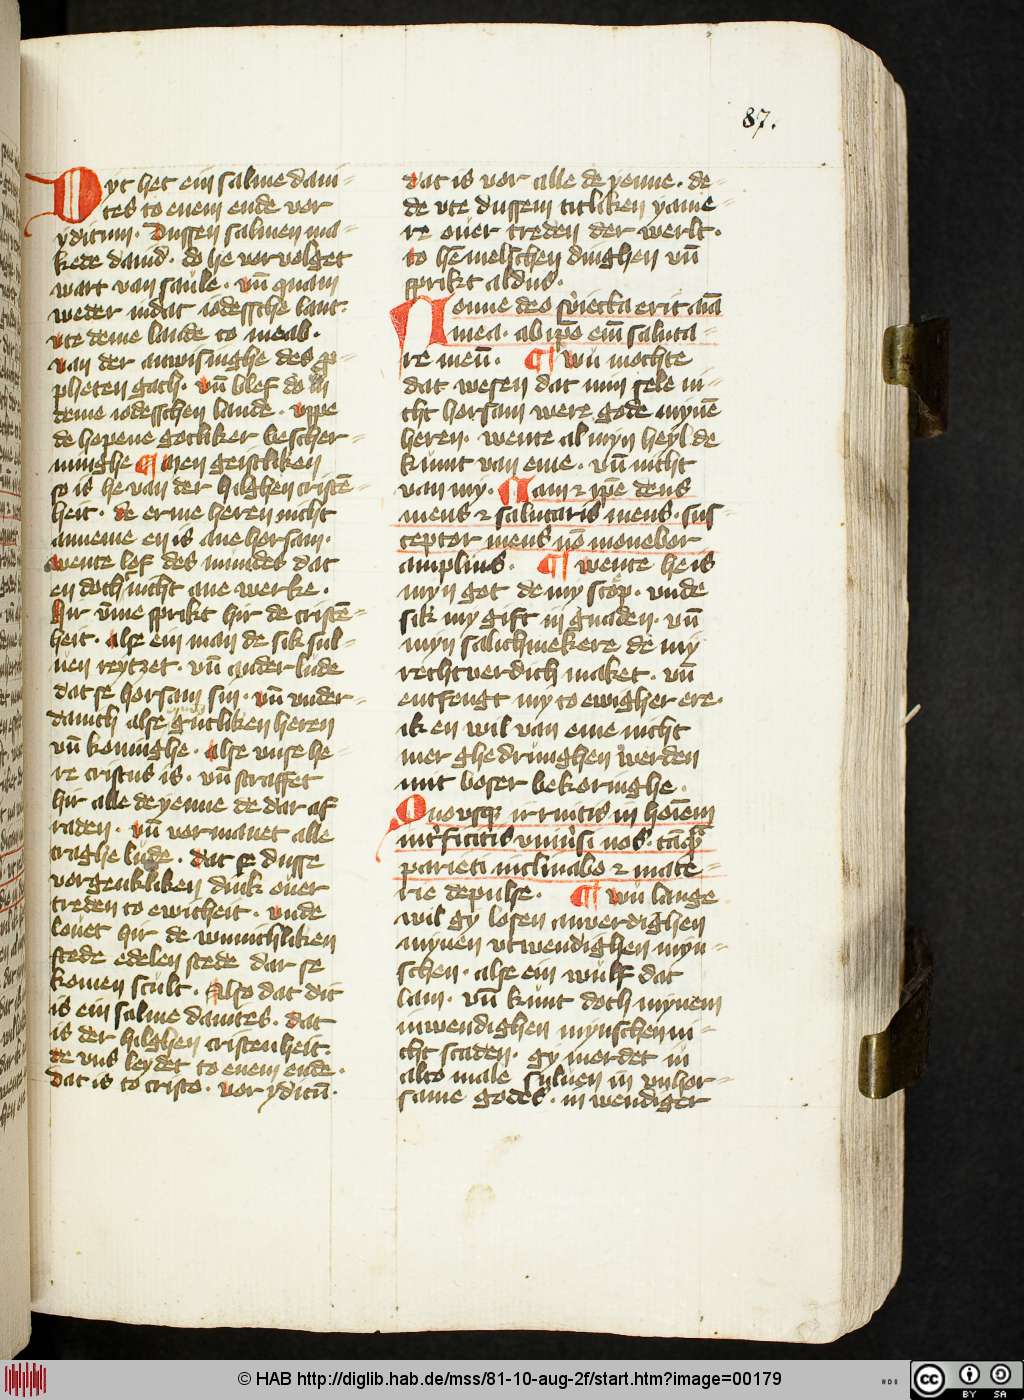 87.
Dyt het ein salme daui-
tes to enem ende vor
yditum. Dussen salmen ma-
kede dauid. do he vorvolget
wart van saule. vn̄ quam
weder in dat iodessche lant.
vte deme lande to moab.
van der anwisinghe des p̱-
pheten gath. vn̄ blef do in
deme iodesschen lande. vppe
de hopene gotliker bescher-
minghe ¶ Men geistliken
so is he van der hilghen cristē-
heit. de erme heren nicht
anneme en is ane horsam.
wente lof des mundes dat
en doch nicht ane werke.
Hir v̄me sprikt hir de cristē-
heit. alse ein man de sik sul-
uen reytzet. vn̄ ander lude
dat se horsam sin. vn̄ vnder-
danich alse gutliken heren
vn̄ koninghe. alse vnse he-
re cristus is. vn̄ straffet
hir alle de yenne de dar af
raden. vn̄ vormanet alle
traghe lude. dat se dusse
vorgenkliken dink ouer
treden to ewicheit. vnde
louet hir de wunichliken
stede edelen stede dar se
komen scult. Also dat dit
is ein salme dauites. dat
is der hilghen cristenheit.
de vns leydet to enem ende.
dat is to cristo. vor yditū.
dat is vor alle de yenne. de-
de vte dussem titliken yame-
re ouer treden der werlt.
to hemelschen dinghen vn̄
sprikt aldus.
Nonne deo sb̓iecta erit aīa
mea. ab ip̄o em̄ saluta-
re meū. ¶ Wu mochte
dat wesen dat min sele ni-
cht horsam were gode mynē
heren. wente al myn heyl de
kumt van eme. vn̄ nicht
van my. Nam ⁊ ip̄e deus
meus ⁊ salutaris meus. sus-
ceptor meus nō mouebor
amplius. ¶ Wente he is
myn got de my scop. vnde
sik my gift in gnaden. vn̄
myn salichmekere de my
rechtverdich maket. vn̄
entfengt my to ewigher ere.
ik en wil van eme nicht
mer ghedrunghen werden
mit boser bekoringhe.
Quousq̨ irruitis in hoīem
int̓ficitis vniu̓si uos. tāq̄
parieti inclinato ⁊ mate-
rie depulse. ¶ Wu lange
wil gy losen anverdighen
mynen vtwendighen myn-
schen. alse ein wulf dat
lam. vn̄ kunt doch mynem
inwendighen mynschen ni-
cht scaden. gy mordet iu
alto male suluen in vnhor-
same godes. in wendiger
© HAB http://diglib.hab.de/mss/81-10-aug-2f/start.htm?image=00179
cc BY SA